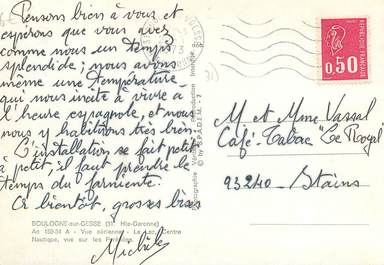 Pensons bien à vous et
espérons que vous avez
comme nous un temps
splendide ; nous avons
même une température
qui nous incite à vivre à
l'heure espagnole, et nous
nous y habituons très bien.
L'installation se fait petit
à petit, il faut prendre le
temps du farniente.
A bientôt, grosses bises
Michèle
BOULOGNE-sur-GESSE (31 Hte-Garonne)
Aé 152-34 A - Vue aérienne - Le Lac, Centre
Nautique, vue sur les Pyrénées.
by SPADEM
REPUBLIQUE FRANCAISE
0,50
M et Mme Vassal
Café-Tabac "Le Royal"
93240 - Stains